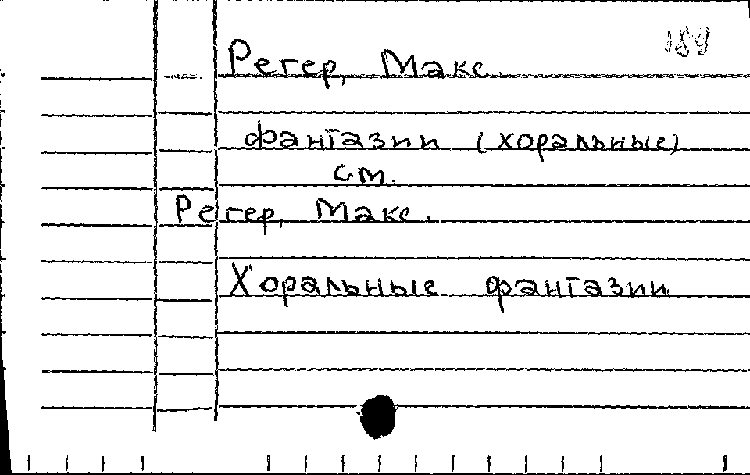 189
Регер, Макс.
фантазии (хоральные)
см.
Регер, Макс.
Хоральные фантазии